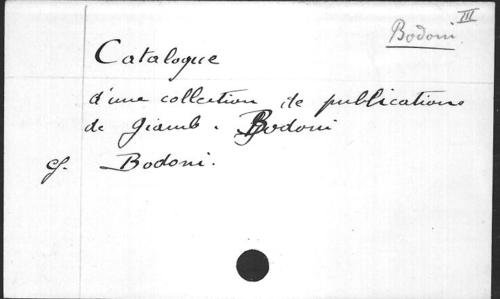 Bodoni III
Catalogue
d'une collection de publications
de Giamb. Bodoni
cf. Bodoni.